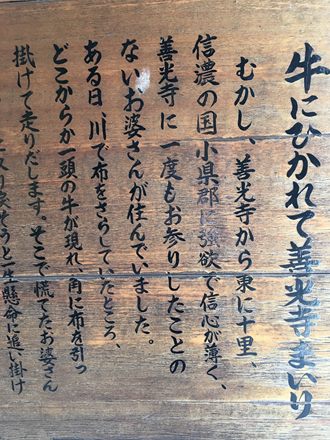 牛にひかれて善光寺まいり
むかし、善光寺から東に十里、
信濃の国小県郡に強欲で信心が薄く、
善光寺に一度もお参りしたことの
ないお婆さんが住んでいました。
ある日、川で布をさらしていたところ、
どこからか一頭の牛が現れ、角に布を引っ
掛けて走りだします。そこで慌てたお婆さん
り戻そうと一生懸命に追い掛け